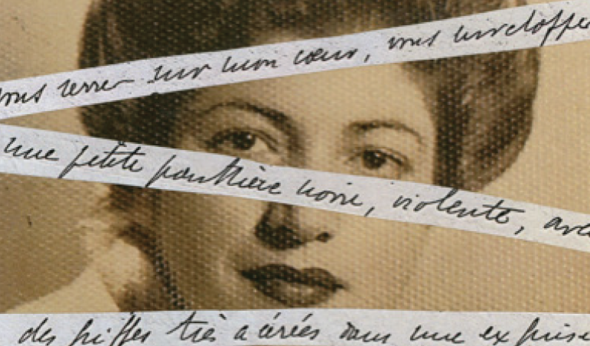 vous serrer sur mon cœur, vous envelopper
une petite panthère noire, violente, avec
des griffes très acérées dans une exprise